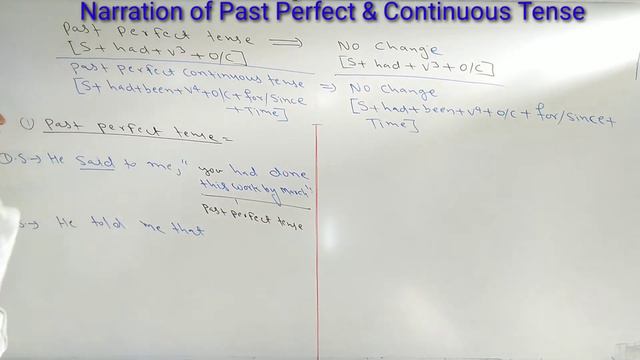 Narration of Past Perfect & Continuous Tense
Past perfect tense ⟹ No Change
[S+had+v³+o/c] [S+had+v³+o/c]
past perfect continuous tense ⇒ No Change
[S+had+been+v⁴+o/c+for/since [S+had+been+v⁴+o/c+for/since+
+Time] Time]
(1) Past perfect tense =
D.S→ He said to me, "you had done
this work by march"
past perfect tense
S→ He told me that